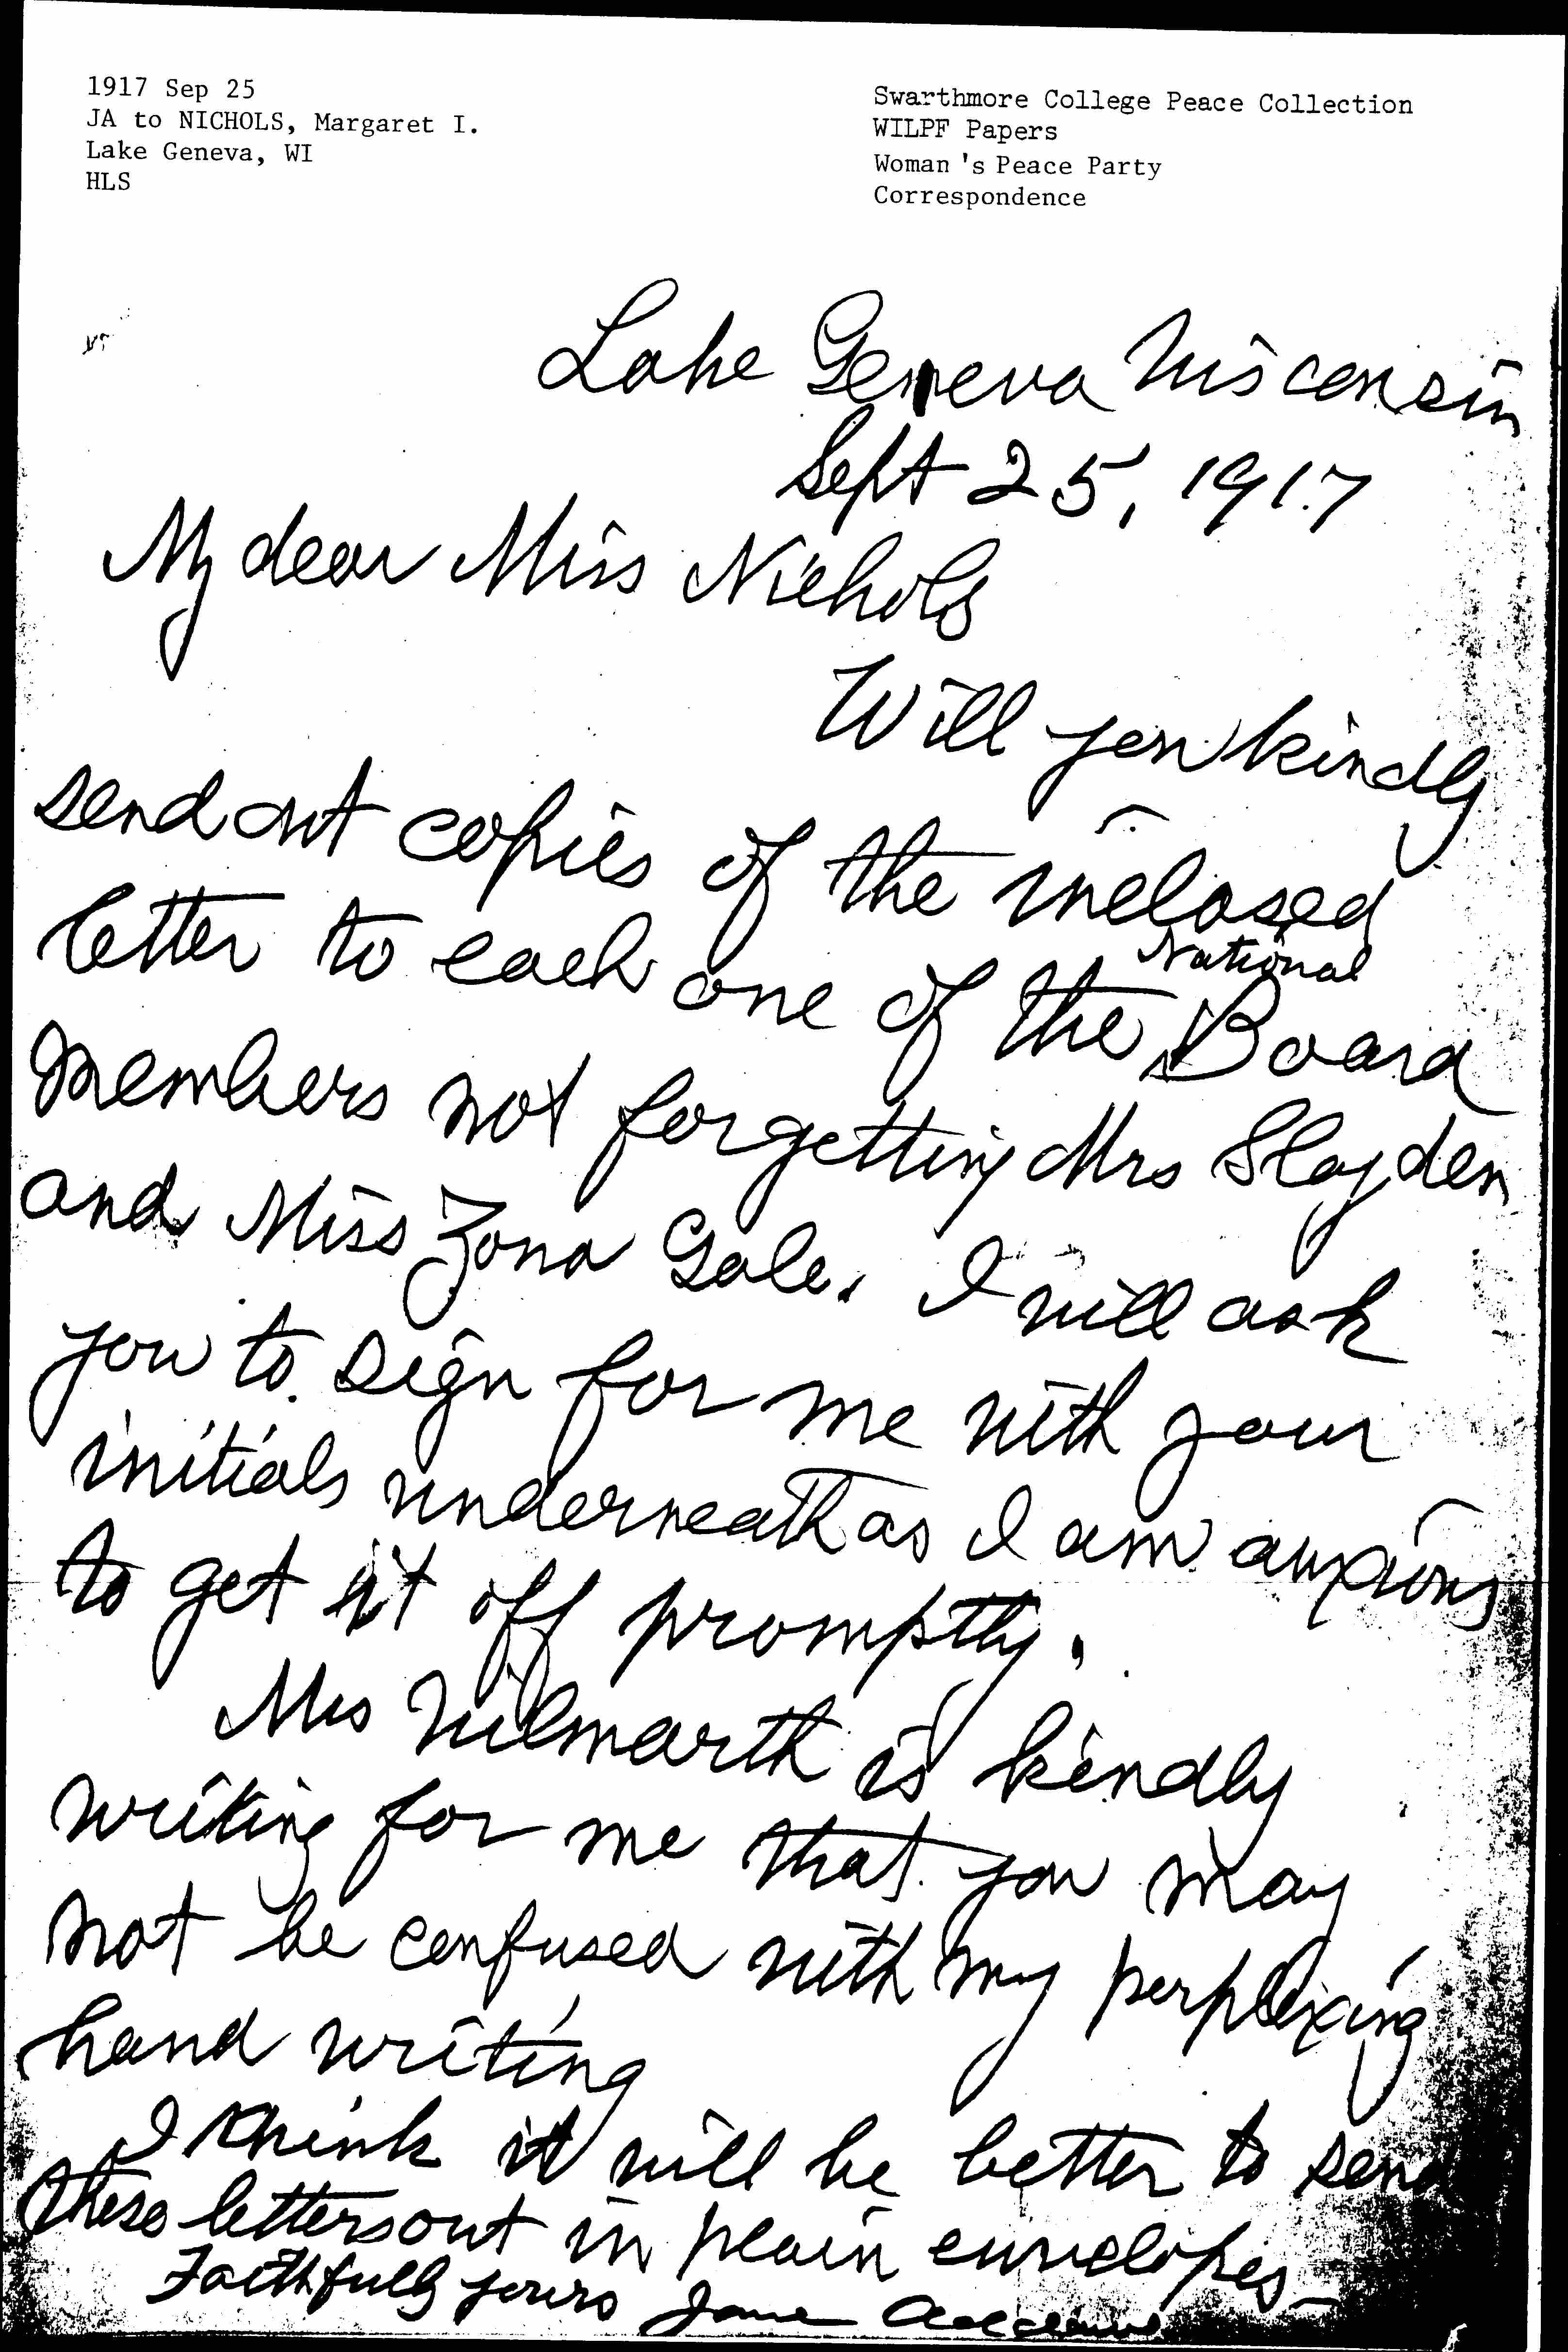 1917 Sep 25
JA to NICHOLS, Margaret I.
Lake Geneva, WI
HLS
Swarthmore College Peace Collection
WILPF Papers
Woman's Peace Party
Correspondence
Lake Geneva Wisconsin
Sept 25, 1917
My dear Miss Nichols
Will you kindly
send out copies of the inclosed
letter to each one of the National Board
members not forgetting Mrs Slayden
and Miss Zona Gale. I will ask
you to sign for me with your
initials underneath as I am anxious
to get it off promptly.
Mrs Wilmarth is kindly
writing for me that you may
not be confused with my perplexing
hand writing
I think it will be better to send
these letters out in plain envelopes
Faithfully yours Jane Addams